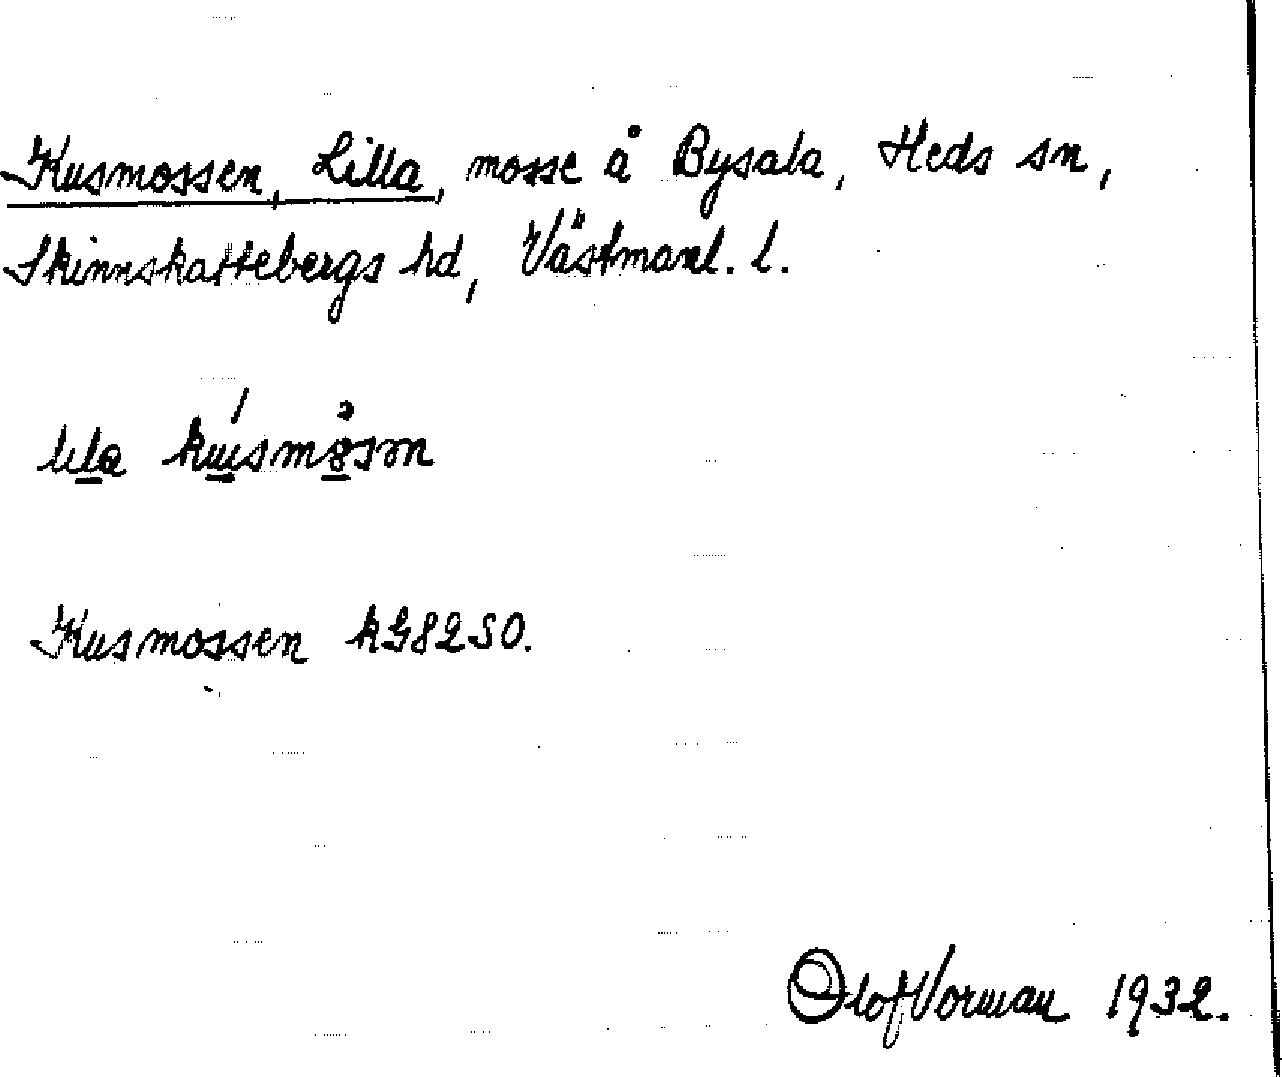 Kusmossen, Lilla, mosse å Bysala, Heds sn,
Skinnskattebergs hd, Västmanl. l.
lila kusmosm
Kusmossen kG82SO.
Olof Vorman 1932.